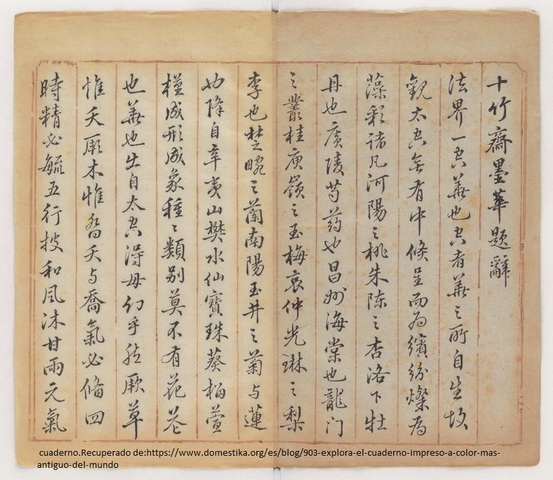 十竹齋墨華題辭
法界一空華也空者華之所自生故
觀太空無有中倐呈而為繽紛燦為
藻彩諸凡河陽之桃朱陳之杏洛下牡
丹也廣陵芍藥也昌州海棠也龍門
之叢桂庾嶺之玉梅哀仲光琳之梨
李也楚畹之蘭南陽玉井之菊与蓮
降自辛夷山樊水仙寶珠葵榴萱
槿成形成象種〻類別莫不有花花
也華也生自太空得毋幻乎然厥草
惟夭厥木惟喬夭与喬氣必脩四
時精必毓五行披和風沐甘雨元氣
cuaderno.Recuperado de:https://www.domestika.org/es/blog/903-explora-el-cuaderno-impreso-a-color-mas-
antiguo-del-mundo